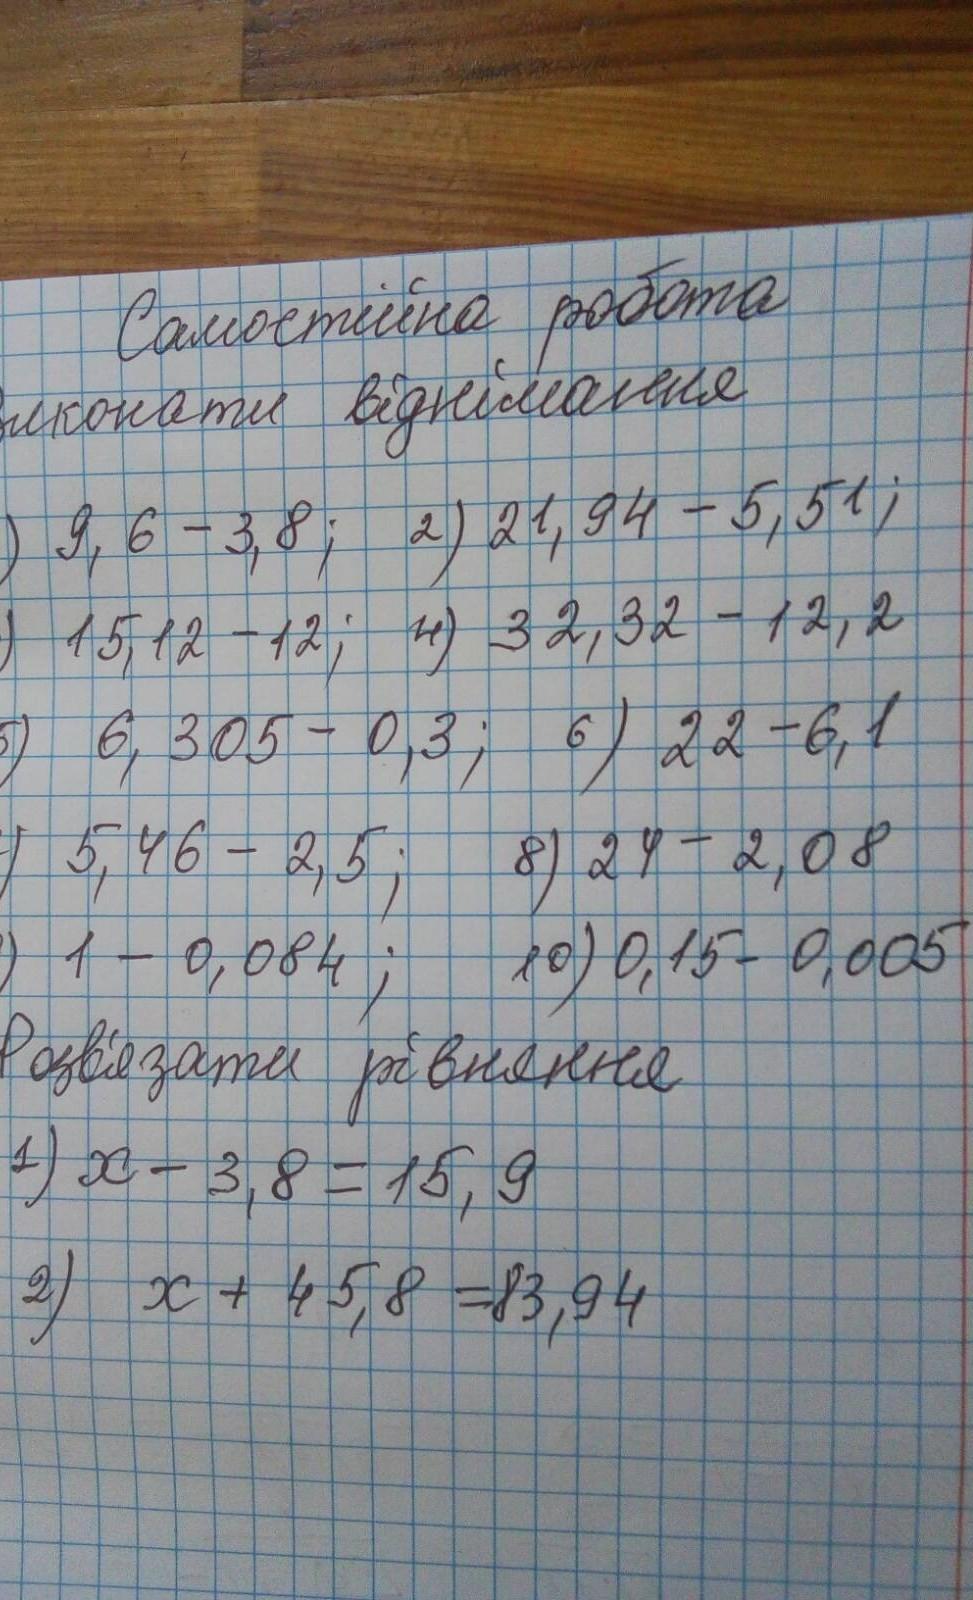 Самостійна робота
Виконати віднімання
) 9,6 - 3,8; 2) 21,94 - 5,51;
) 15,12 - 12; 4) 32,32 - 12,2
5) 6,305 - 0,3; 6) 22 - 6,1
) 5,46 - 2,5; 8) 24 - 2,08
) 1 - 0,084; 10) 0,15 - 0,005
Розв'язати рівняння
1) x - 3,8 = 15,9
2) x + 45,8 = 83,94